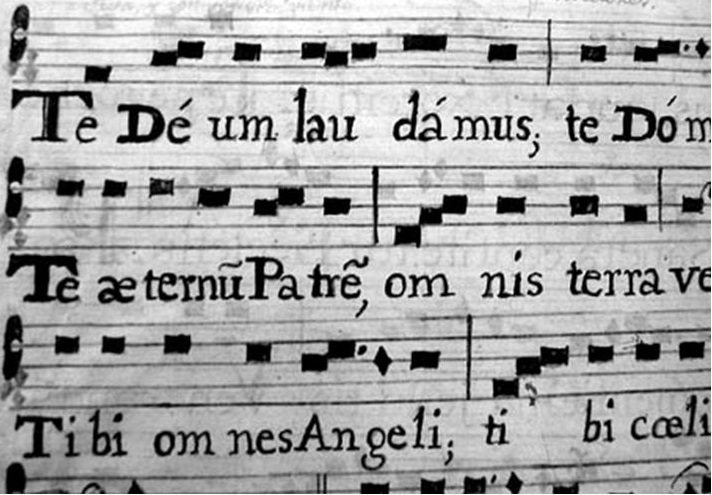 Te Dé um lau dá mus; te Dó m
Te æ ternũ Pa trẽ, om nis terra ve
Ti bi om nes An ge li; ti bi cœli